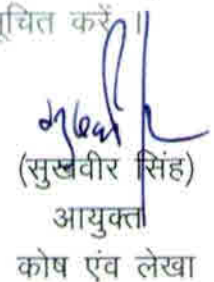 करें ।
(सुखवीर सिंह)
आयुक्त
कोष एंव लेखा